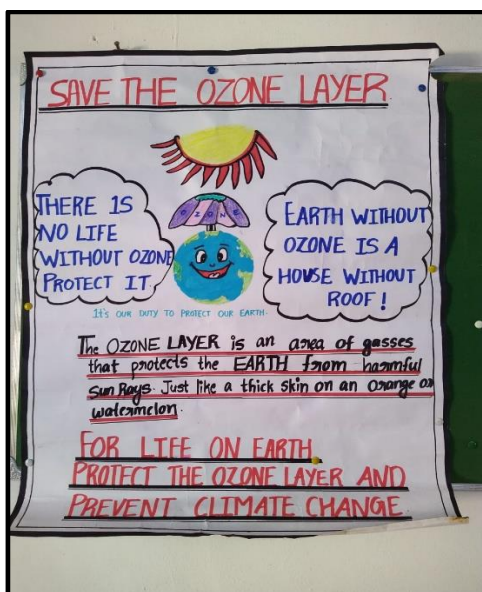 SAVE THE OZONE LAYER
OZONE
THERE IS
NO LIFE
WITHOUT OZONE
PROTECT IT.
EARTH WITHOUT
OZONE IS A
HOUSE WITHOUT
ROOF!
It's OUR DUTY TO PROTECT OUR EARTH.
The OZONE LAYER is an area of gasses
that protects the EARTH from harmful
Sun Rays. Just like a thick skin on an Orange or
watermelon.
FOR LIFE ON EARTH
PROTECT THE OZONE LAYER AND
PREVENT CLIMATE CHANGE